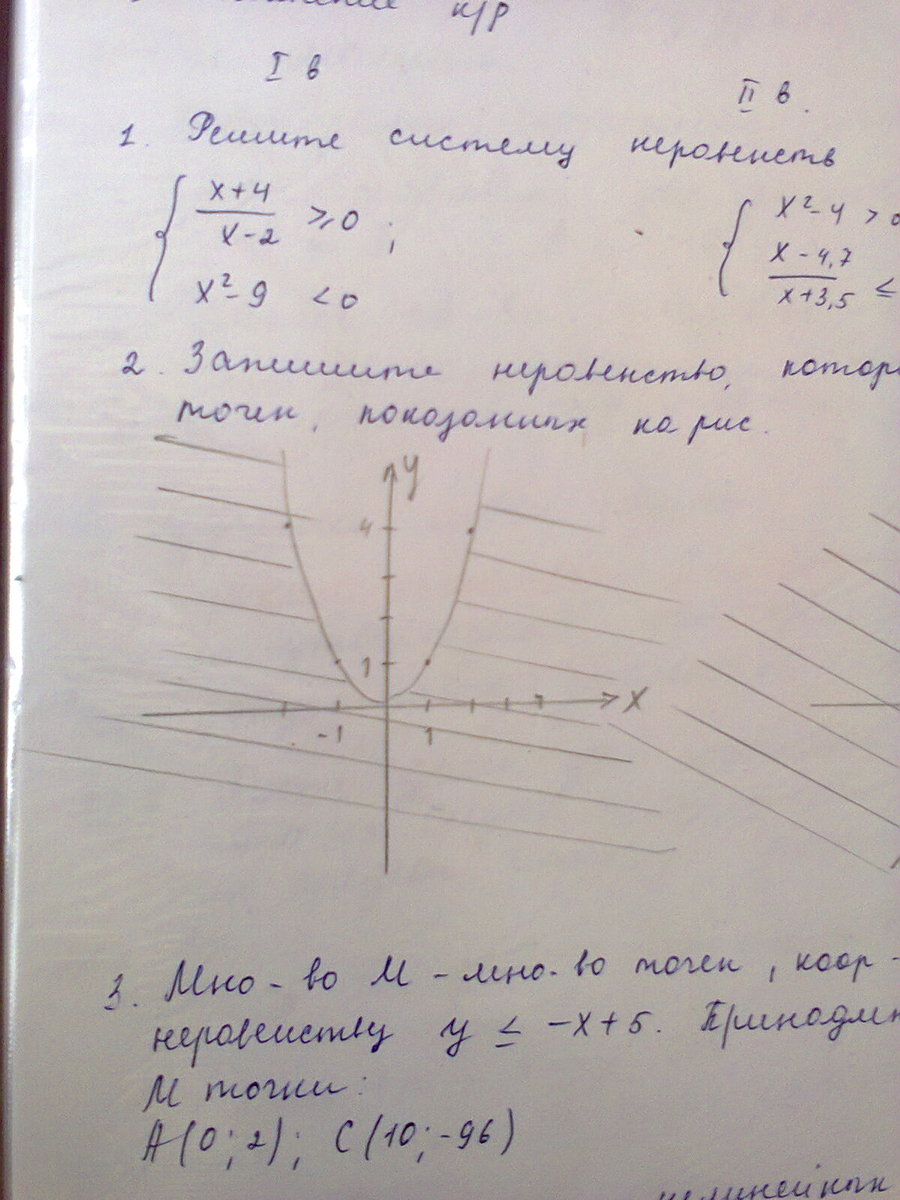 к/р
I в
II в.
1. Решите систему неравенств
x+4
x-2
≥0 ;
x²-9 <0
x²-4 >
x-4,7
x+3,5
≤
2. Запишите неравенство, котор
точек, показанных на рис.
y
4
1
x
-1
1
3. Мно-во М - мно-во точек, коор-
неравенству y ≤ -x+5. Принадле
М точки:
А(0;2); С(10;-96)
нелинейных